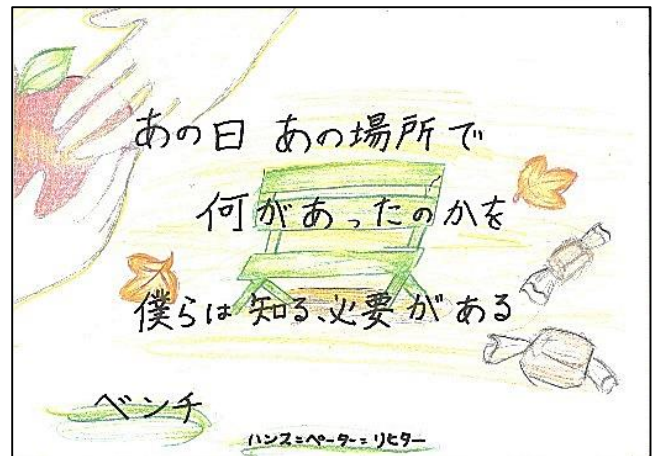 あの日 あの場所で
何があったのかを
僕らは知る必要がある
ベンチ
ハンス=ペーター=リヒター